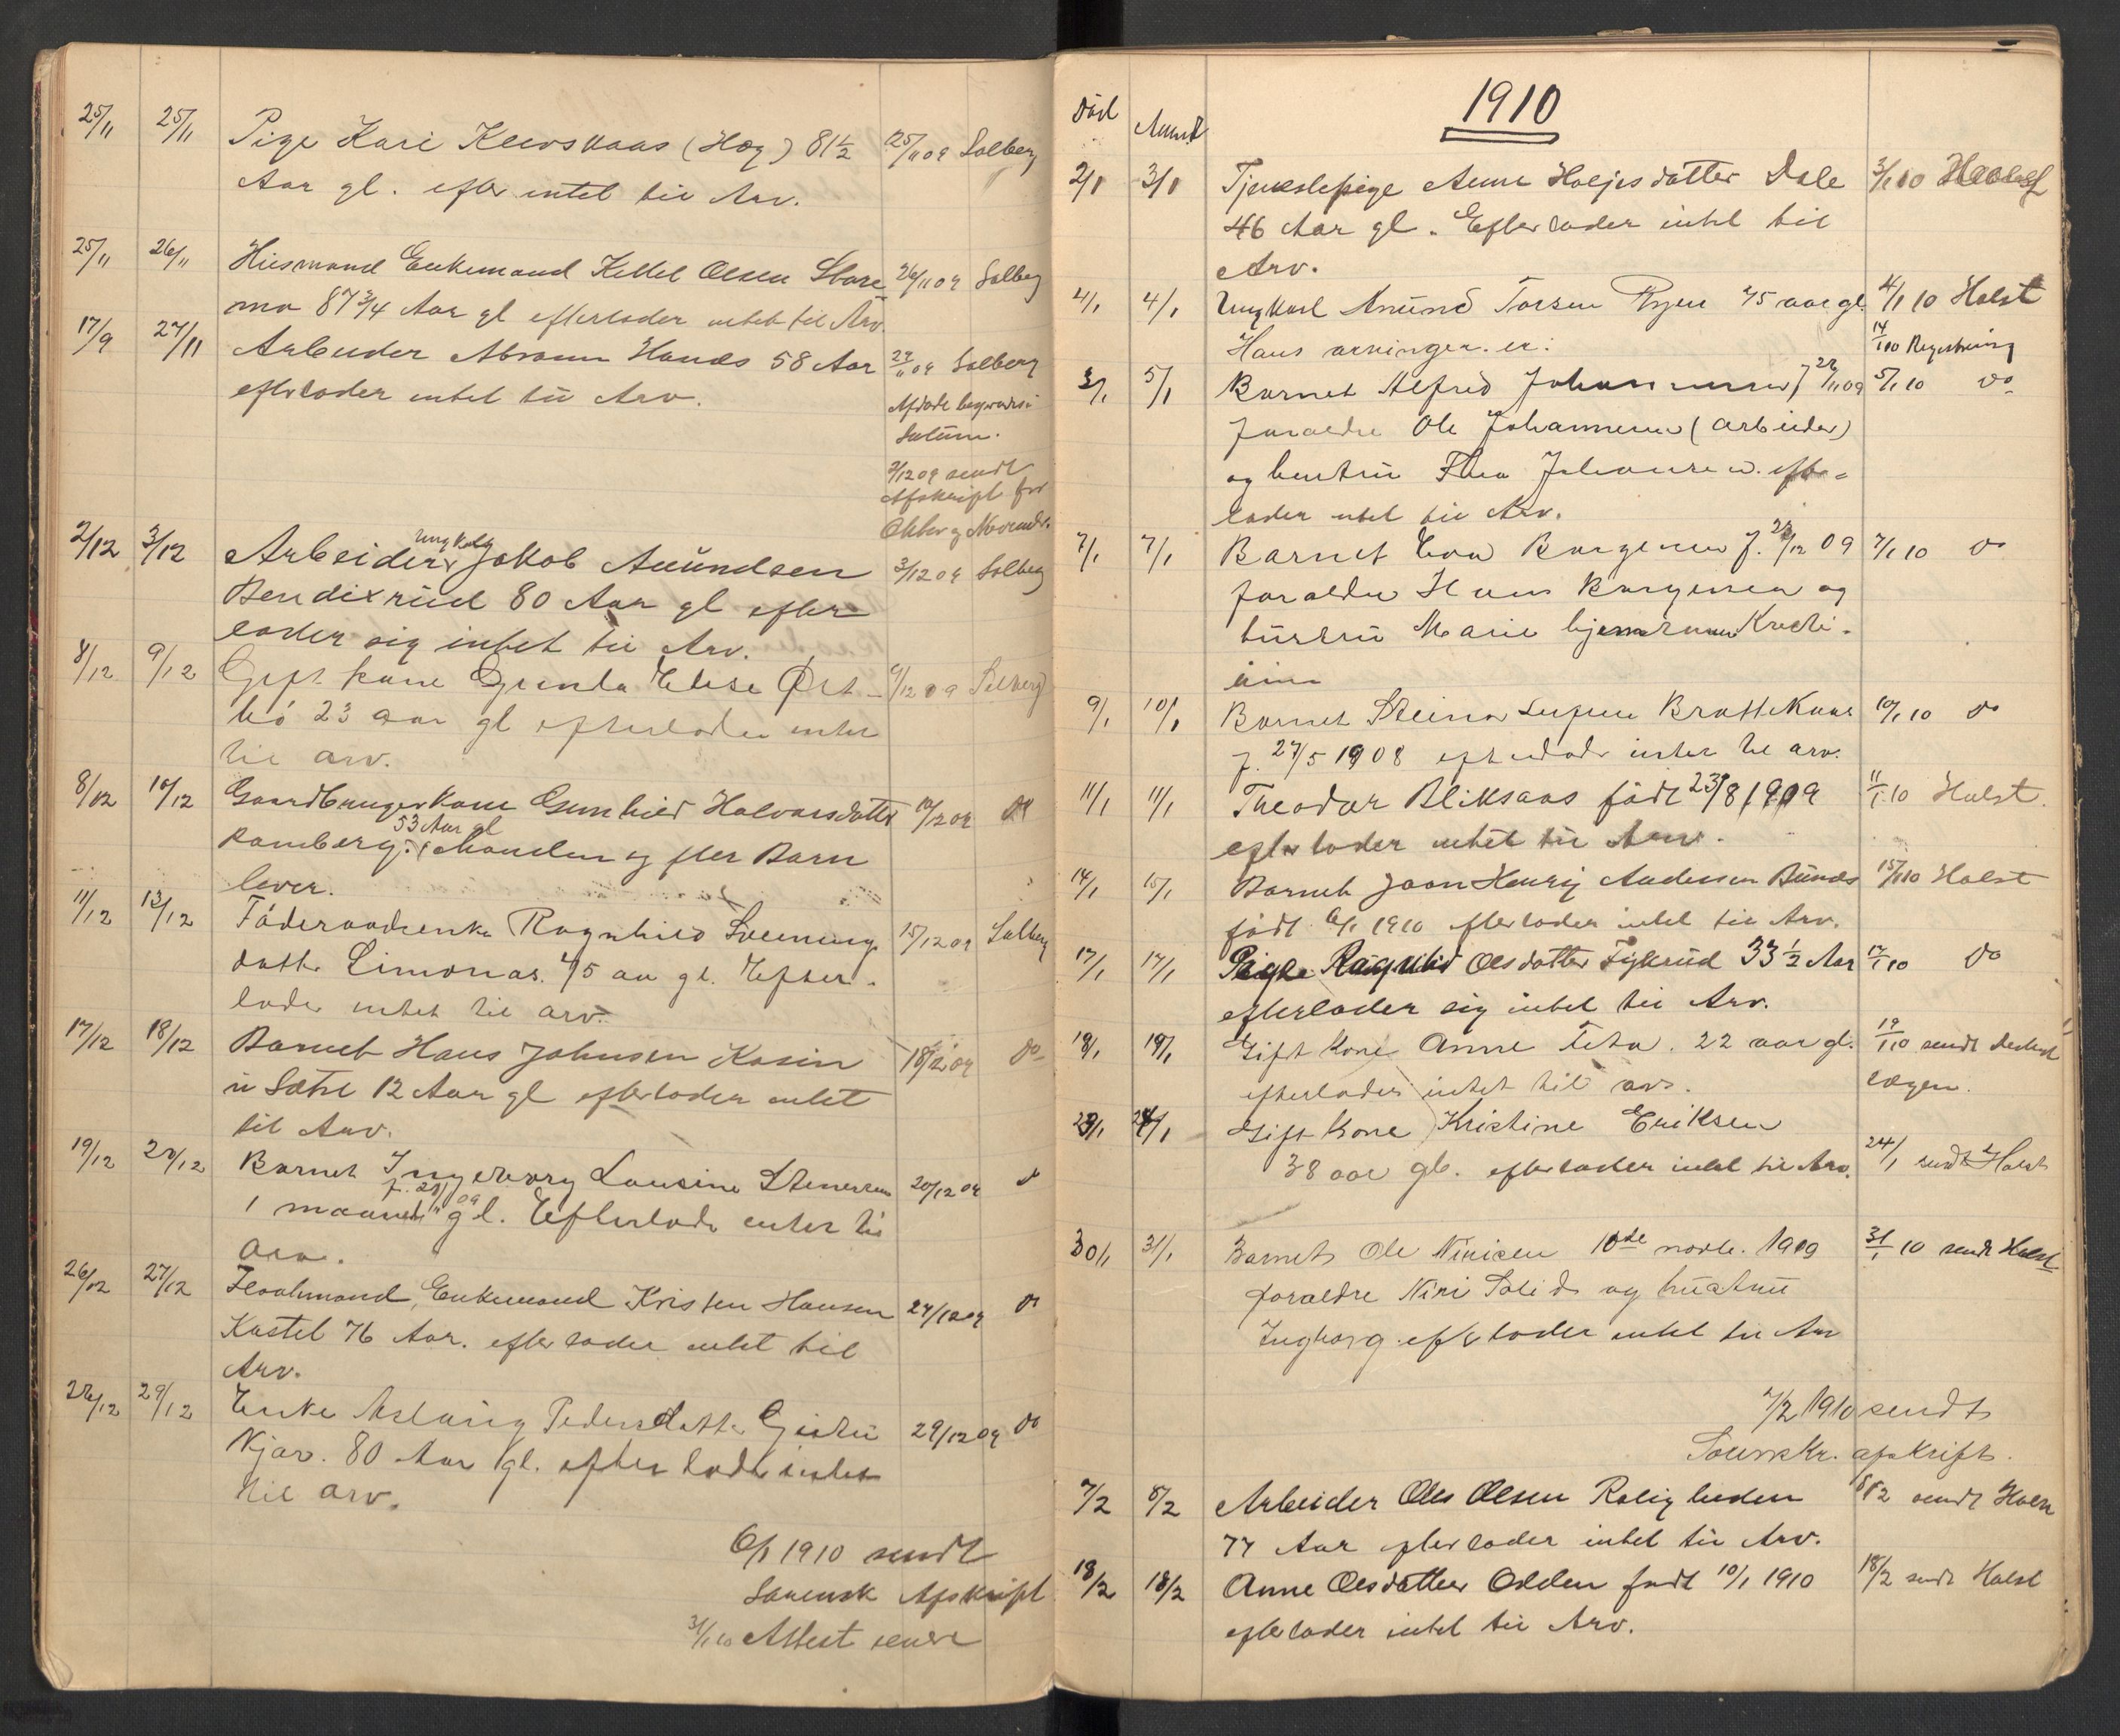 25/11 25/11 Pige Kari Kleivskaas (Hæg) 81½ 25/11 09 Solberg
Aar gl. efter intet til Arv.
25/11 26/11 Huusmand Enkemand Kittel Olsen Store 26/11 09 Solberg
mo 87 3/4 Aar gl efterlader intet til Arv
17/9 27/11 Arbeider Abraam Hands 58 Aar 27/11 09 Solberg
efterlader intet til Arv.
Afdøde begraves i
Solum.
2/12 09 sendt
Afskrift for
Oktber og Novembr.
2/12 3/12 Arbeider Ungkarl Jakob Amundsen 3/12 09 Solberg
Bendixrud 80 Aar gl efter
lader sig intet til Arv.
8/12 9/12 Gift kone Gunda Elise Øst- 9/12 09 Solberg
bø 23 aar gl efterlader intet
til arv.
8/12 10/12 Gaardbrugerkone Gunhild Halvorsdatter 10/12 09 do
Ramberg. 53 Aar gl Manden og fler Barn
lever.
11/12 13/12 Føderaadsenke Ragnhild Sveinung 15/12 09 Solberg
datter Limonas. 75 aar gl. Efter.
lader intet til arv.
17/12 18/12 Barnet Hans Johnsen Kasin 18/12 09 do
u Sætre 12 Aar gl efterlader intet
til Arv.
19/12 20/12 Barnet Ingeborg Lousine Stenersen 20/12 09 do
1 maaned gl. Efterlader intet til
arv.
26/12 27/12 Enkemand Kristen Hansen 27/12 09 do
Kastel 76 Aar. efterlader intet til
Arv.
28/12 29/12 Enke Aslaug Pedersdatter 29/12 09 do
80 Aar gl. efterlader intet
til arv.
6/1 1910 sendt
Sorensk Afskript
3/1 10 Attest
1910
Død Anmeldt
2/1 3/1 Tjenestepige Anne Holjesdatter Dale 3/1 10
46 Aar gl. Efterlader intet til
Arv.
4/1 4/1 Ungkarl Amund Torsen Ryen 75 aar gl. 4/1 10 Holst
Hans arvinger er: 14/1 10 Registrering
3/1 5/1 Barnet Alfred Johannesen f 28/11 09 5/1 10 do
foraeldre Ole Johannesen (arbeider)
og hustru Thea Johansen. efter=
lader intet til Arv.
7/1 7/1 Barnet Eva Borgersen f. 28/12 09 7/1 10 do
foraeldre Hans Borgersen og
hustru Marie hjemme Kristi-
ania
9/1 10/1 Barnet Steinar Brattekaas 10/1 10 do
f. 27/5 1908 efterlader intet til arv.
11/1 11/1 Theodor Bliksaas født 23/8 1909 11/1 10 Holst.
efterlader intet til Arv.
14/1 15/1 Barnet Joon Henrij Andersen 15/1 10 Holst
født 6/1 1910 efterlader intet til Arv.
17/1 17/1 Pige Ragnhild Olsdatter Fykrud 33½ Aar 17/1 10 do
efterlader sig intet til Arv.
19/1 19/1 Gift kone Anne Teta. 22 aar gl. 19/1 10 sendt
efterlader intet til arv. lægen.
23/1 24/1 Gift kone Kristine Eriksen
38 aar gl. efterlader intet til Arv. 24/1 sendt Holst
30/1 31/1 Barnet Ole Ninisen 10de novbr. 1909 31/1 10 sendt Holst
foraeldre Nini Solid og hustru
Ingborg efterlader intet til Arv
7/2 1910 sendt
Sorenskr. afskrift.
7/2 8/2 Arbeider Ole Olsen Roligheden 8/2 sendt Holst
77 Aar efterlader intet til Arv.
18/2 18/2 Anne Olsdatter Odden født 10/1 1910 18/2 sendt Holst
efterlader intet til Arv.